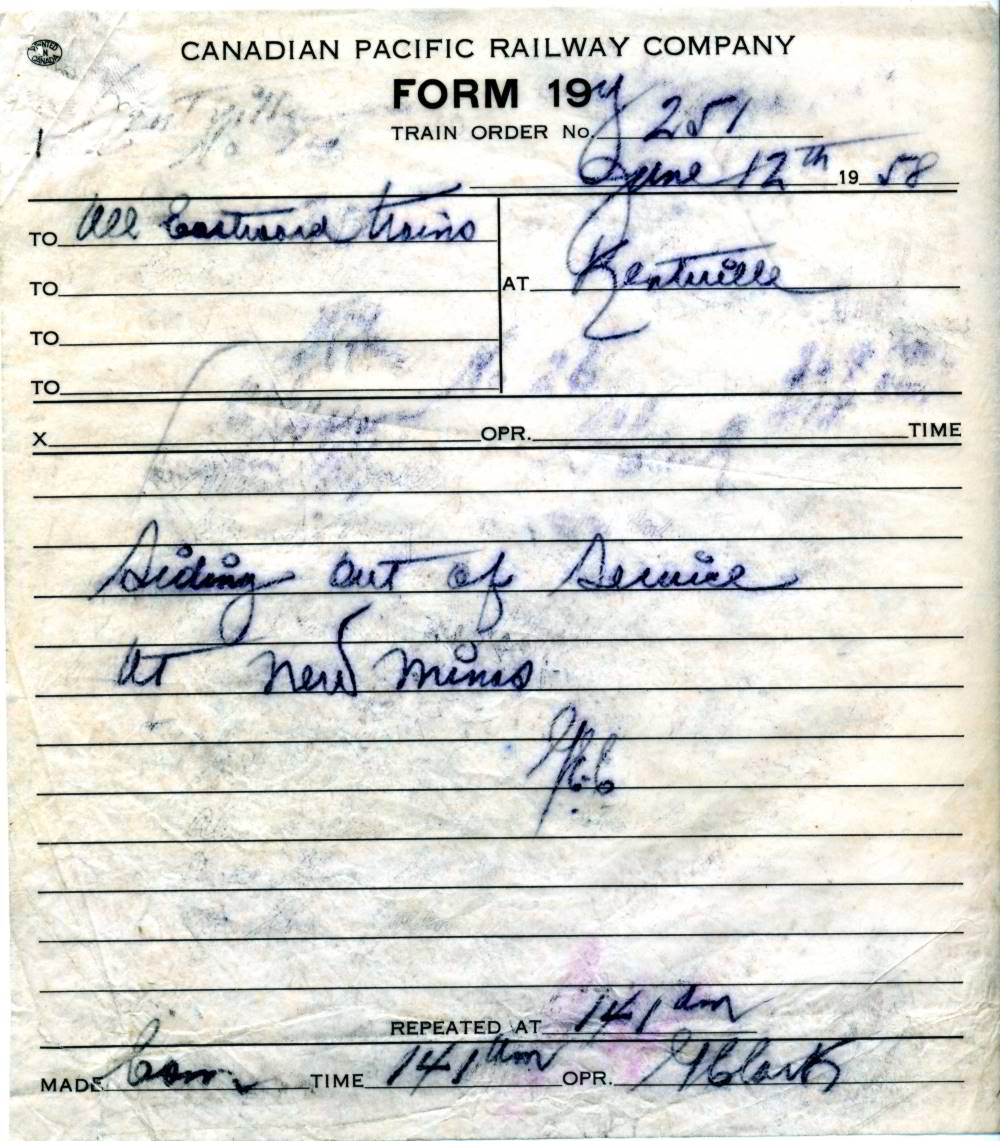 PRINTED IN CANADA
CANADIAN PACIFIC RAILWAY COMPANY
FORM 19Y
TRAIN ORDER No. 251
June 12th 19 58
TO All Eastward trains
TO
AT Kentville
TO
TO
X OPR. TIME
Siding out of Service
at New Minas
REPEATED AT 141 am
MADE Com TIME 141 am OPR. Clark